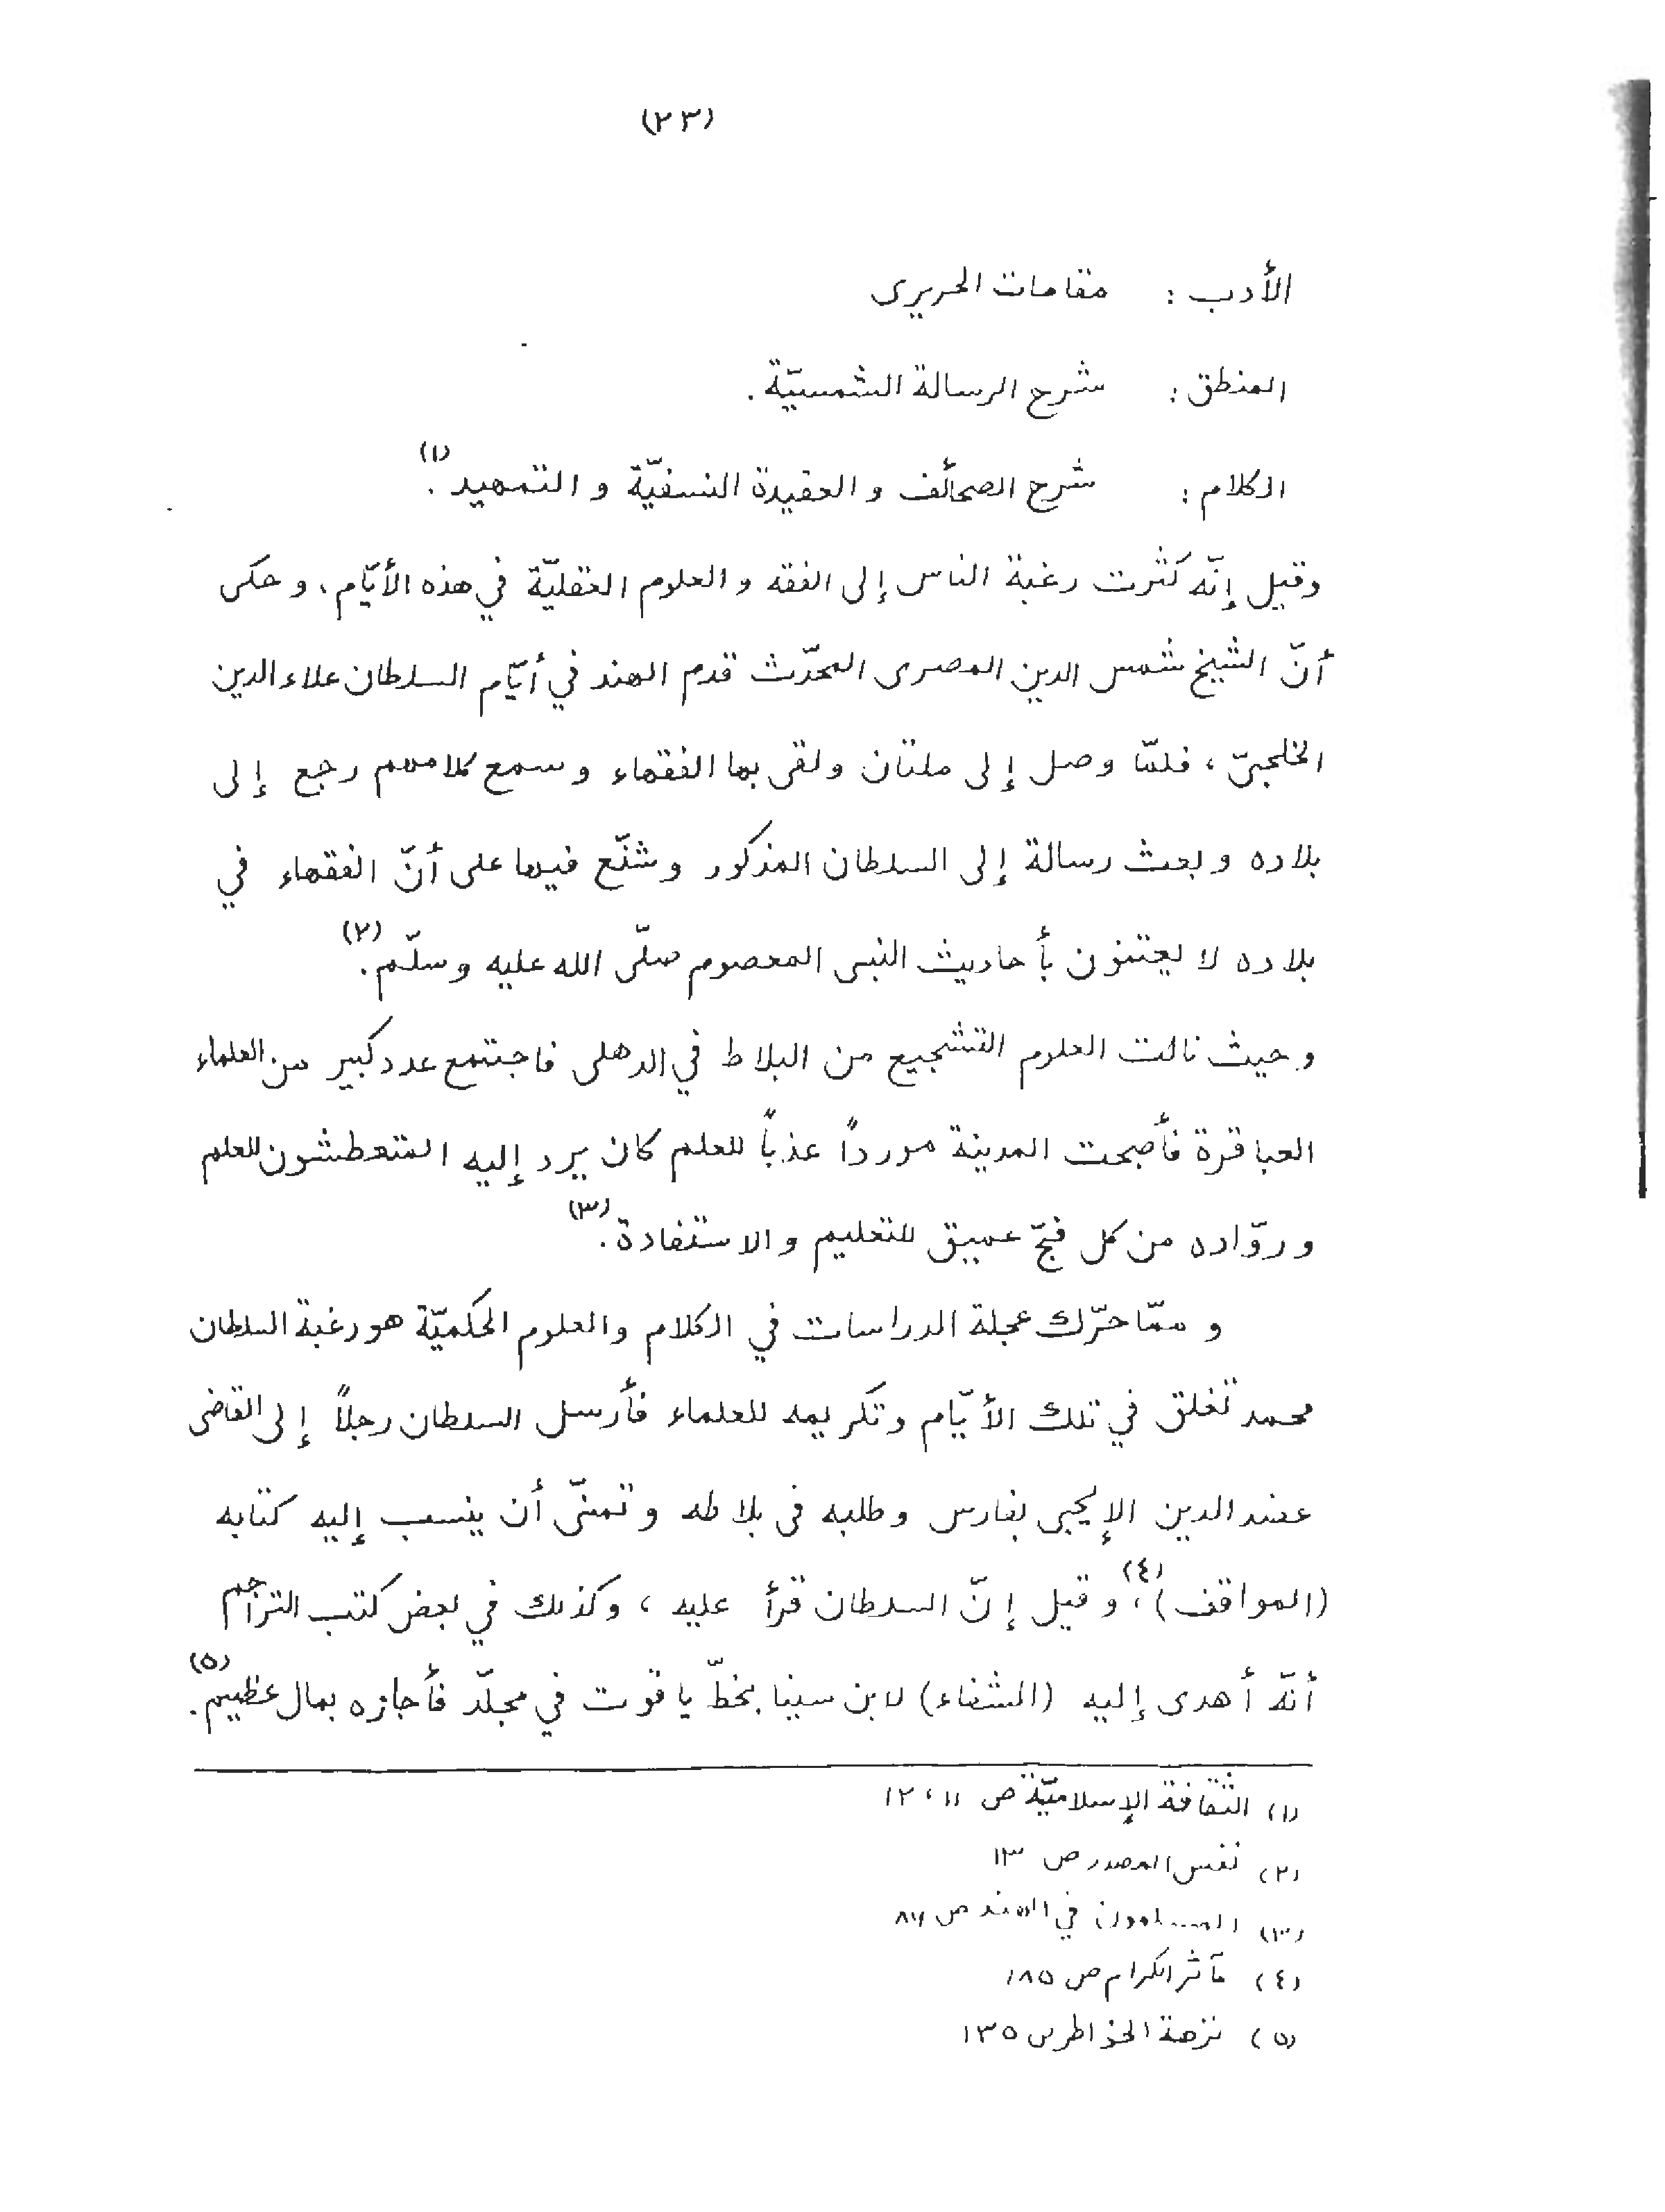 (٢٣)
الأدب : مقامات الحريرى
المنطق : شرح الرسالة الشمسيّة .
الكلام : شرح الصحائف و العقيدة النسفيّة و التمهيد .(١)
وقيل إنّه كثرت رغبة الناس إلى الفقه و العلوم العقليّة في هذه الأيّام ، و حكى
أنّ الشيخ شمس الدين المصرى المحدّث قدم الهند في أيّام السلطان علاء الدين
الخلجيّ ، فلمّا وصل إلى ملتان ولقى بها الفقهاء و سمع كلامهم رجع إلى
بلاده و بعث رسالة إلى السلطان المذكور و شنّع فيها على أنّ الفقهاء في
بلاده لا يعتنون بأحاديث النبى المعصوم صلّى الله عليه وسلّم .(٢)
و حيث نالت العلوم التشجيع من البلاط في الدهلى فاجتمع عدد كبير من العلماء
العباقرة فأصبحت المدينة مورداً عذباً للعلم كان يرد إليه المتعطشون للعلم
و روّاده من كل فجّ عميق للتعليم و الاستفادة .(٣)
و ممّا حرّك عجلة الدراسات في الكلام والعلوم الحكميّة هو رغبة السلطان
محمد تغلق في تلك الأيّام وتكريمه للعلماء فأرسل السلطان رجلاً إلى القاضى
عضد الدين الإيجى بفارس وطلبه فى بلاطه و تمنّى أن ينسب إليه كتابه
(المواقف)(٤)، و قيل إنّ السلطان قرأ عليه ، وكذلك في بعض كتب التراجم
أنّه أهدى إليه (الشفاء) لابن سينا بخطّ ياقوت في مجلّد فأجازه بمال عظيم .(٥)
(١) الثقافة الإسلاميّة ص ١١ ، ١٢
(٢) نفس المصدر ص ١٣
(٣) المسلمون في الهند ص ٨٧
(٤) مآثر الكرام ص ١٨٥
(٥) نزهة الخواطر ص ١٣٥